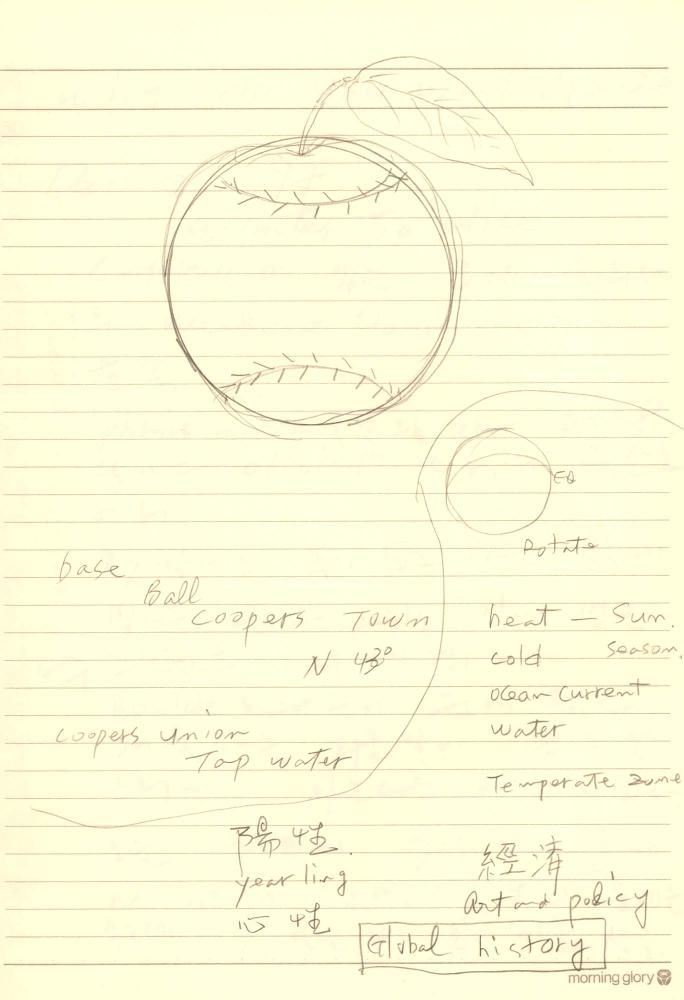 EQ
Rotate
base
Ball
Coopers Town
N 43°
heat — Sun.
cold season.
ocean current
water
Coopers union
Tap water
Temperate zone
陽性.
year ling
心性
經濟
Art and policy
Global history
morning glory